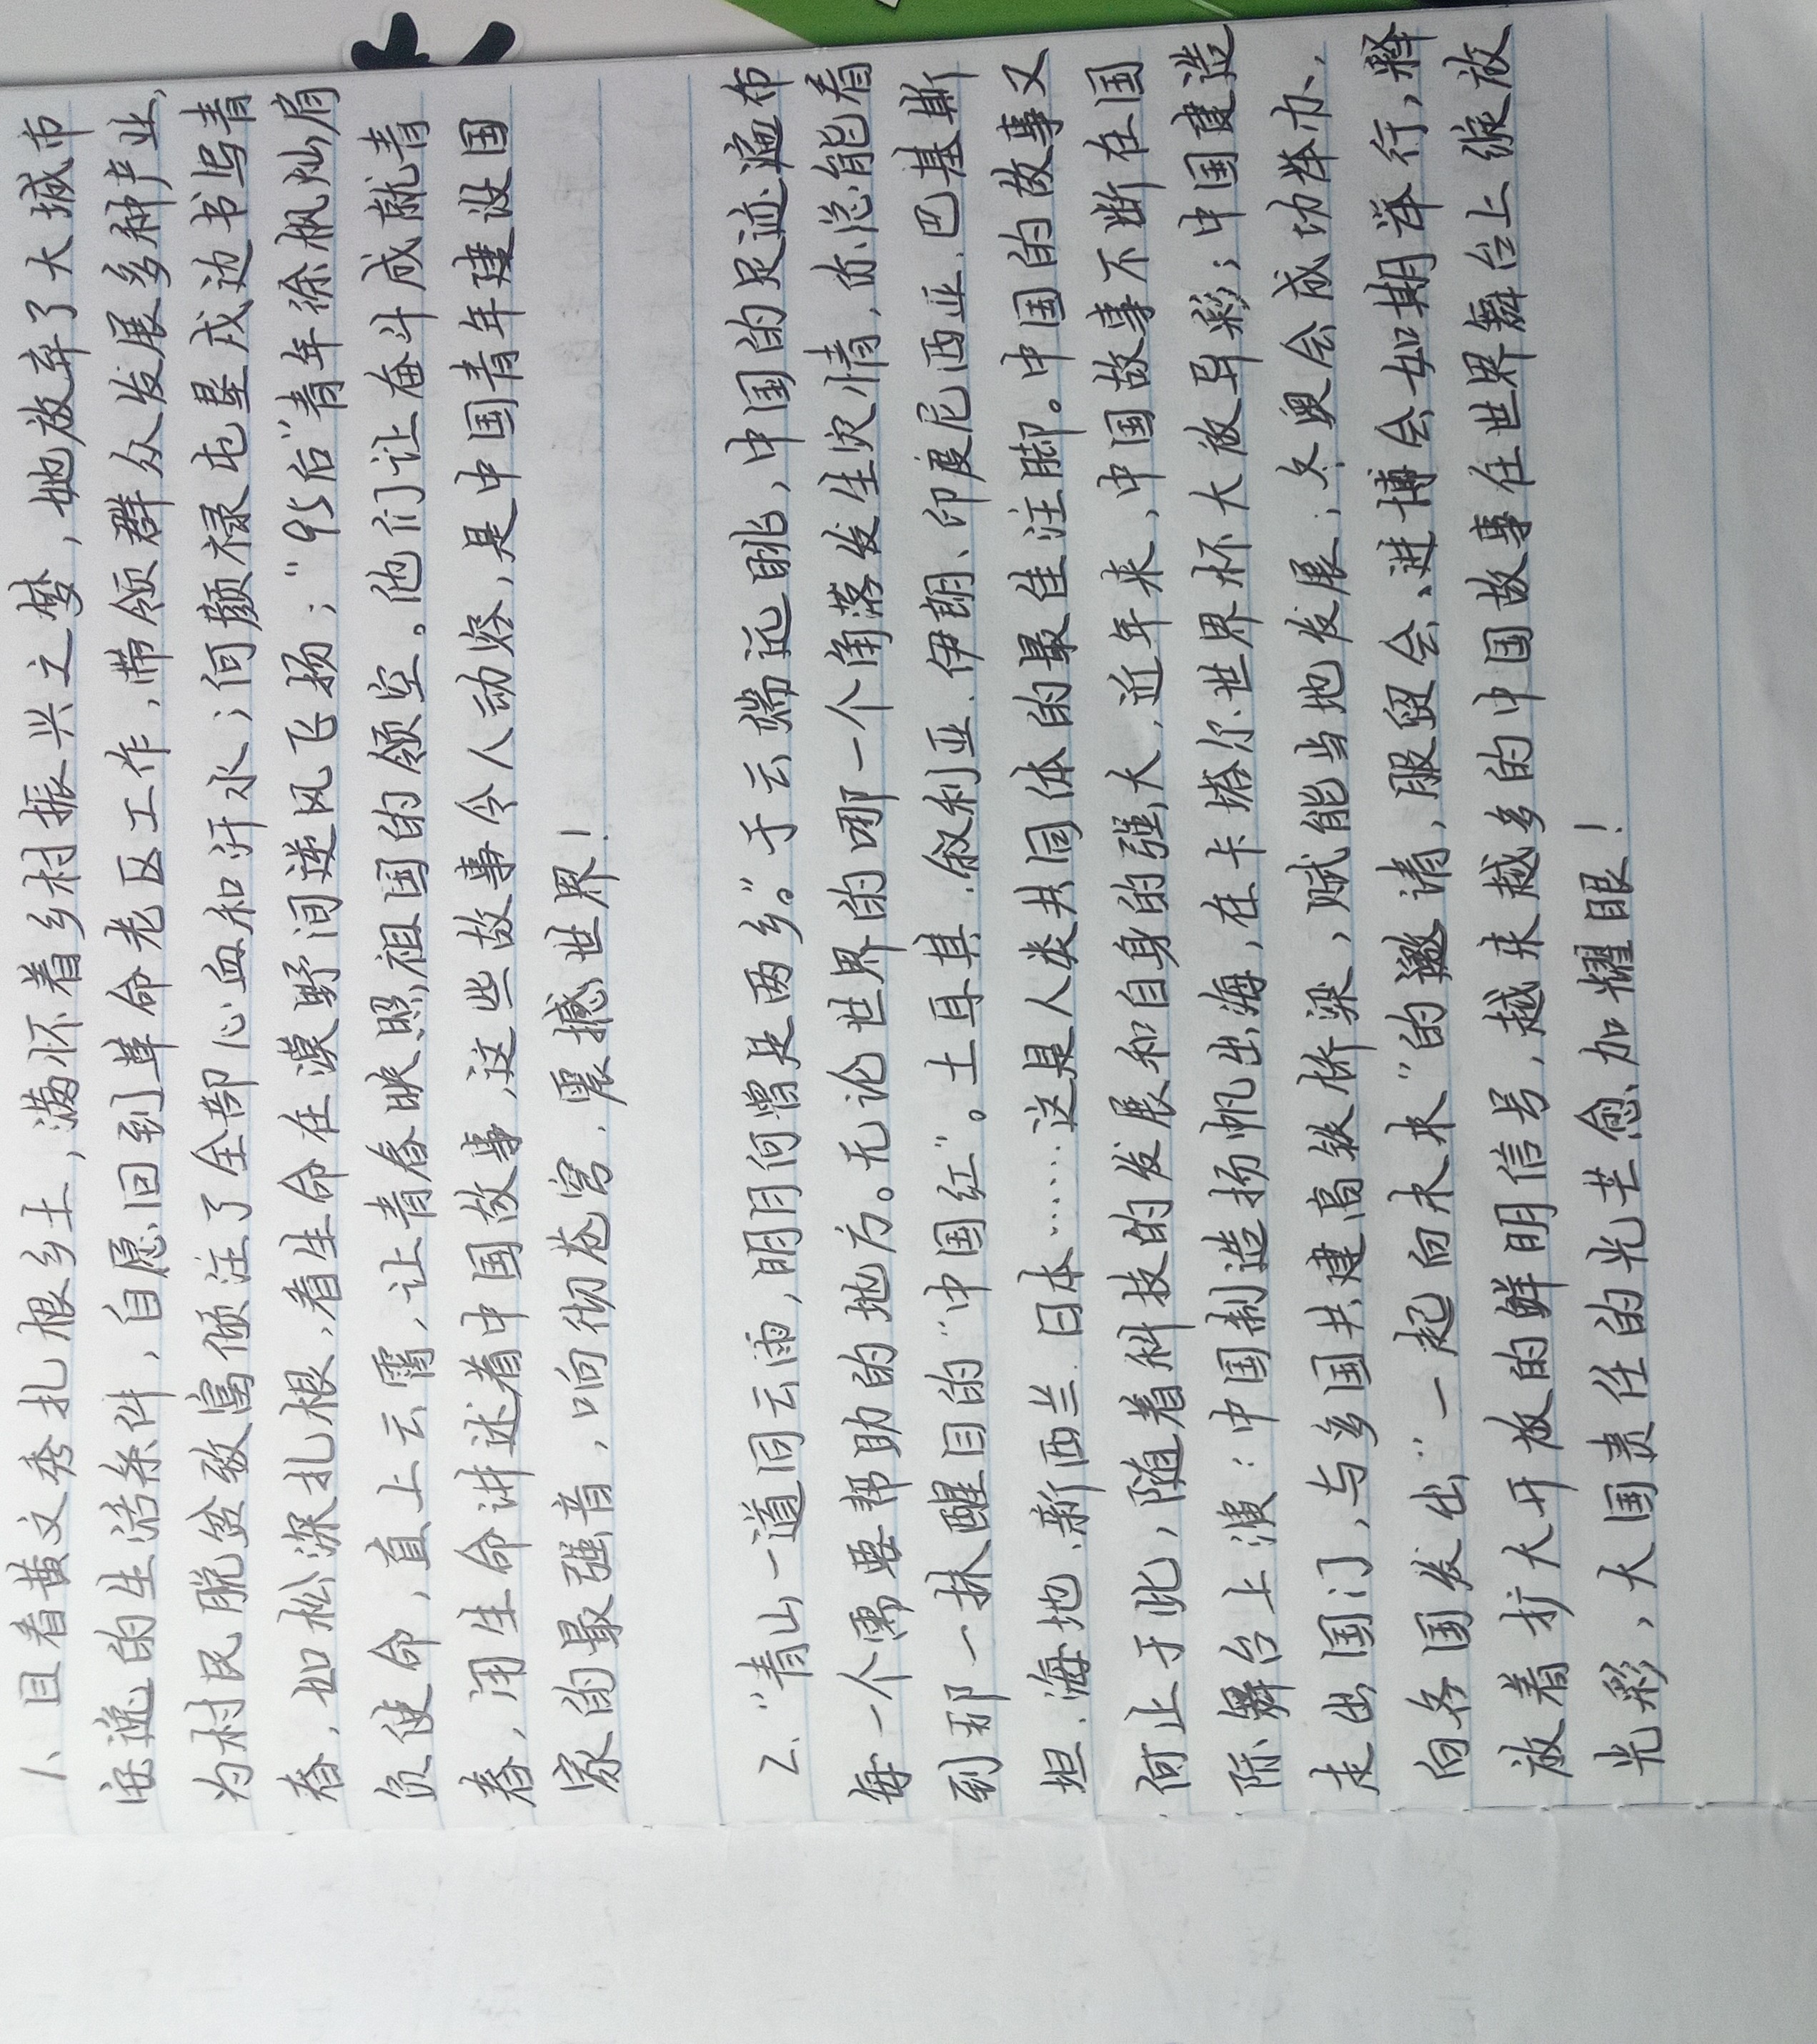 1、且看黄文秀扎根乡土，满怀着乡村振兴之梦，她放弃了大城市
安逸的生活条件，自愿回到革命老区工作，带领群众发展多种产业，
为村民脱贫致富倾注了全部心血和汗水；何颜禄屯垦戍边书写青
春，如松深扎根，看生命在漠野间逆风飞扬；“95后”青年徐枫灿肩
负使命，直上云霄，让青春映照祖国的领空。他们让奋斗成就青
春，用生命讲述着中国故事，这些故事令人动容，是中国青年建设国
家的最强音，响彻苍穹，震撼世界！
2、“青山一道同云雨，明月何曾是两乡。”于云端远眺，中国的足迹遍布
每一个需要帮助的地方。无论世界的哪一个角落发生灾情，你总能看
到那一抹醒目的“中国红”。土耳其、叙利亚、伊朗、印度尼西亚、巴基斯
坦、海地、新西兰、日本……这是人类共同体的最佳注脚。中国的故事又
何止于此，随着科技的发展和自身的强大，近年来，中国故事不断在国
际舞台上演：中国制造扬帆出海，在卡塔尔世界杯大放异彩；中国建造
走出国门，与多国共建高铁桥梁，赋能当地发展；冬奥会成功举办，
向各国发出“一起向未来”的邀请，服贸会、进博会如期举行，释
放着扩大开放的鲜明信号，越来越多的中国故事在世界舞台上绽放
光彩，大国责任的光芒愈加耀眼！